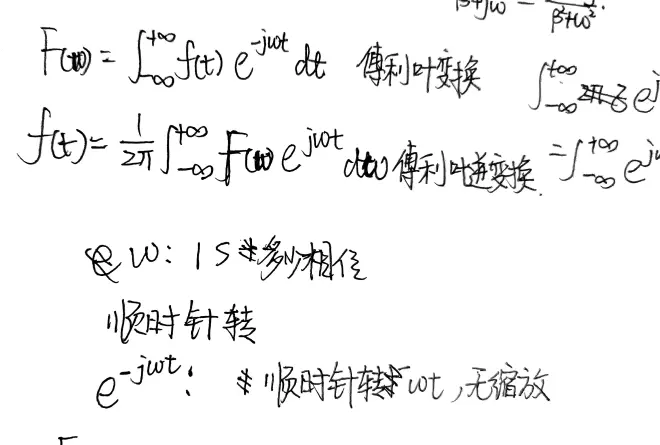 β+jω = β²+ω²
F(ω) = ∫_{-∞}^{+∞} f(t) e^{-jωt} dt 傅利叶变换 ∫_{-∞}^{+∞} e^j
f(t) = 1/2π ∫_{-∞}^{+∞} F(ω) e^{jωt} dω 傅利叶逆变换 = ∫_{-∞}^{+∞} e^j
ω: 1S 多少相位
顺时针转
e^{-jωt}: 顺时针转 ωt, 无缩放